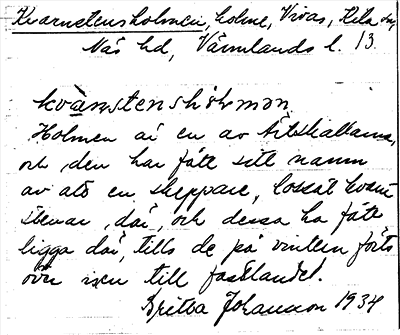 Kvarnstensholmen, holme, Vivas, Kila sn,
Näs hd, Värmlands l. 13.
kvàrnstenshòlmən
Holmen är en av
och den har fått sitt namn
av att en skeppare, lossat kvarn
stenar, där, och dessa ha fått
ligga där, tills de på vintern förts
över isen till fastlandet.
Britta Johansson 1934